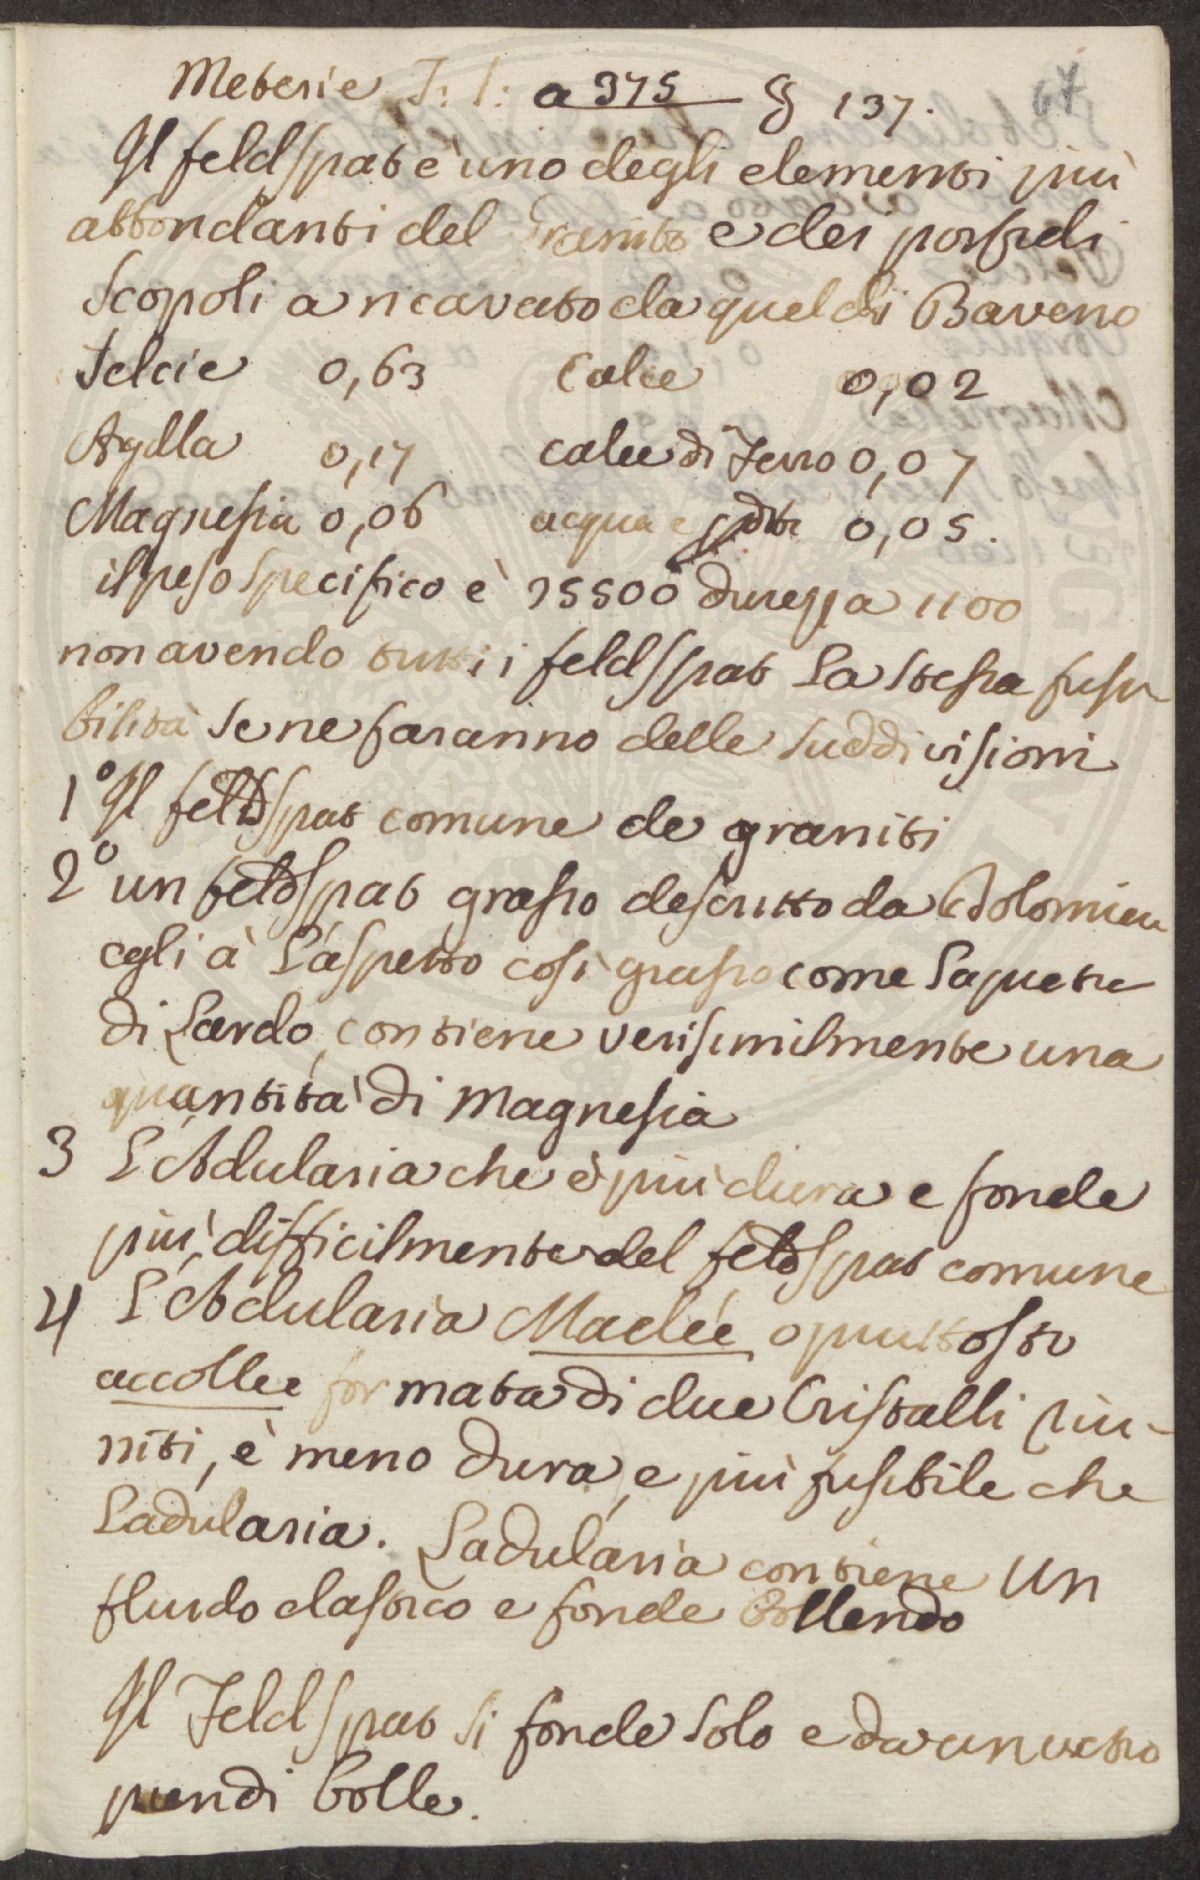 Meterie T: I: a 375 § 137.
Il feldspat è uno degli elementi più
abbondanti del Granito e dei porfidi
Scopoli a ricavato da quel di Baveno
Selcie 0,63 Calce 0,02
Argilla 0,17 calce di Ferro 0,07
Magnesia 0,06 acqua e 0,05.
il peso specifico è 25500 durezza 1100
non avendo tutti i feldspat la stessa fusi-
bilità se ne faranno delle suddivisioni
1º Il feldspat comune de graniti
2º un feldspat grasso descritto da Dolomieu
egli à l'aspetto così grasso come la pietre
di Lardo, contiene verisimilmente una
quantità di Magnesia
3 L'Adularia che è più dura e fonde
più difficilmente del feldspat comune
4 L'Adularia Maclée o piuttosto
accollée formata di due Cristalli riu-
niti, è meno dura, e più fusibile che
Ladularia. Ladularia contiene un
fluido elastico e fonde bollendo
Il Feldspat si fonde solo e da un vetro
pien di bolle.